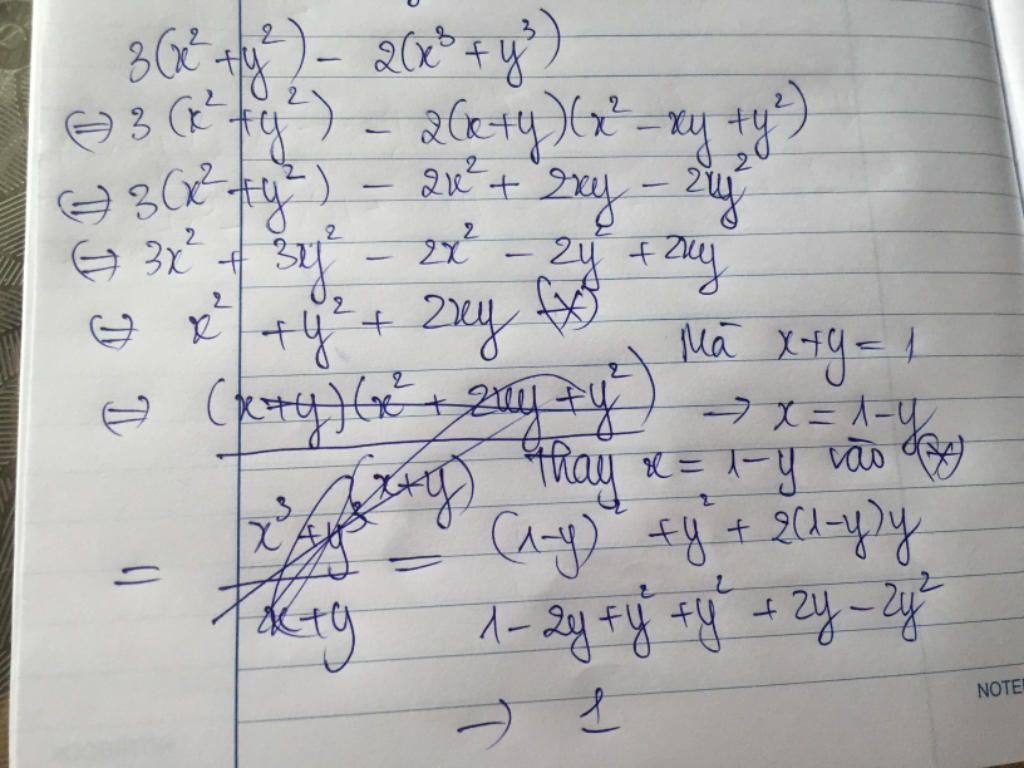 3(x² + y²) - 2(x³ + y³)
⇔ 3(x² + y²) - 2(x+y)(x² - xy + y²)
⇔ 3(x² + y²) - 2x² + 2xy - 2y²
⇔ 3x² + 3y² - 2x² - 2y² + 2xy
⇔ x² + y² + 2xy (*)
Mà x+y = 1
⇔ (x+y)(x² + 2xy + y²)
→ x = 1-y
(x+y)
Thay x = 1-y vào (*)
= x³ + y³ / x+y = (1-y)² + y² + 2(1-y)y
1 - 2y + y² + y² + 2y - 2y²
→ 1
NOTE